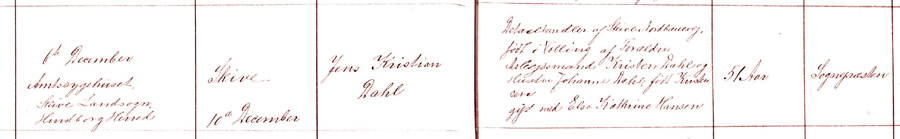 6te December
Amtssygehuset,
Skive Landsogn,
Hindborg Herred
Skive
10de December
Jens Kristian
Dahl
Detailhandler af Skive Nordbanevej,
født i Volling af Forældre
Aftægtsmand Kristen Dahl og
Hustru Johanne Dahl, født Kristen
sen
gift med Else Kathrine Hansen
51 Aar
Sognepræsten